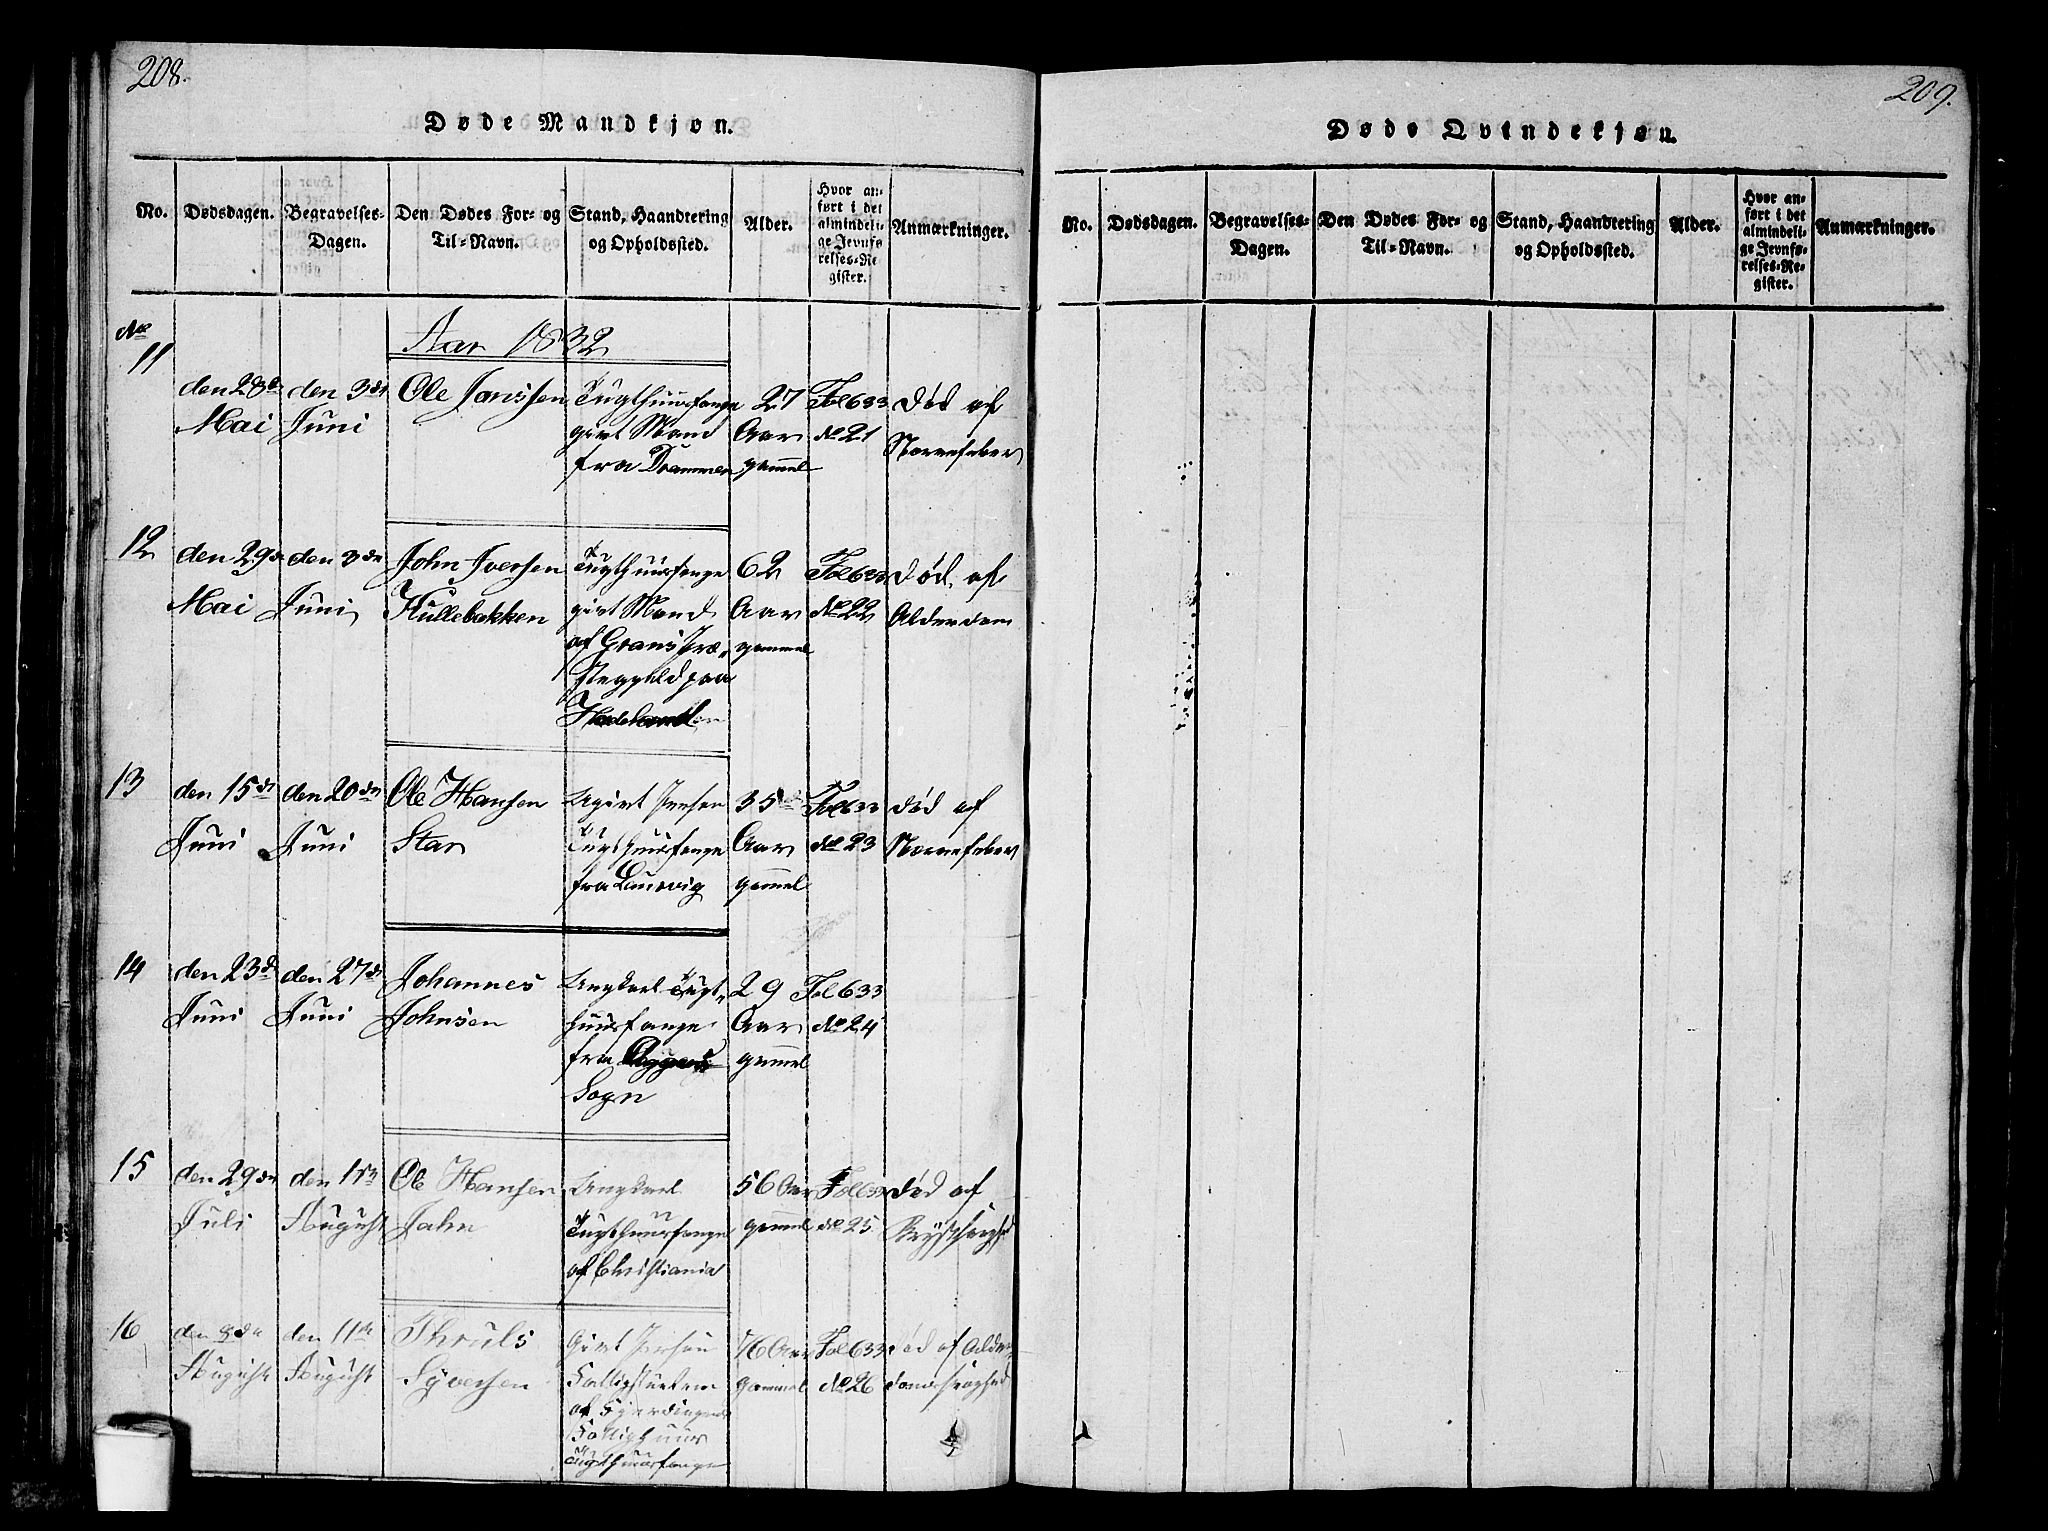 208.
Døde Mandkjøn.
No.
Dødsdagen.
Begravelses-
Dagen.
Den Dødes For- og
Til-Navn.
Stand, Haandtering
og Opholdssted.
Alder.
Hvor an-
ført i det
almindeli-
ge Jevnfø-
relses-Re-
gister.
Anmærkninger.
Aar 1832
No
11
den 28de
Mai
den 3de
Juni
Ole Janssen
Tugthuusfange
givt Mand
fra Drammen
27
Aar
gammel
Fol 633
No 21
død af
Nervefeber
12
den 29de
Mai
den 3de
Juni
John Iversen
Hullebakken
Tugthuusfange
givt Mand
af Grans Præ-
stegjeld paa
Hadeland
62
Aar
gammel
Fol 633
No 22
død af
Alderdom
13
den 15de
Juni
den 20de
Juni
Ole Hansen
Star
Ugivt Person
Tugthuusfange
fra Laurvig
35
Aar
gammel
Fol 633
No 23
død af
Nervefeber
14
den 23de
Juni
den 27de
Juni
Johannes
Johnsen
Ungkarl Tugt-
huusfange
fra Aggers
Sogn
29
Aar
gammel
Fol 633
No 24
15
den 29de
Juli
den 1ste
August
Ole Hansen
Jahn
Ungkarl
Tugthuusfange
af Christiania
56 Aar
gammel
Fol 633
No 25
død af
Brystsvaghed
16
den 8de
August
den 11te
August
Thruls
Syversen
Givt Person
af
Tugthuusfange
76 Aar
gammel
Fol 633
No 26
død af Alder-
domssvaghed
209.
Døde Qvindekjøn.
No.
Dødsdagen.
Begravelses-
Dagen.
Den Dødes For- og
Til-Navn.
Stand, Haandtering
og Opholdssted.
Alder.
Hvor an-
ført i det
almindeli-
ge Jevnfø-
relses-Re-
gister.
Anmærkninger.